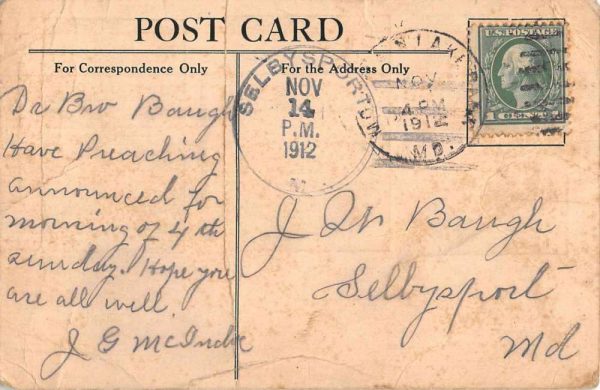 POST CARD
For Correspondence Only
For the Address Only
Dr Bro Baugh
Have Preaching
announced for
morning of 4th
sunday. Hope you
are all well.
J G McIndoe
SELBYSPORT
NOV
14
P.M.
1912
NOV
4 PM
1912
MD.
U.S. POSTAGE
1 CENT 1
J W Baugh
Selbysport
Md